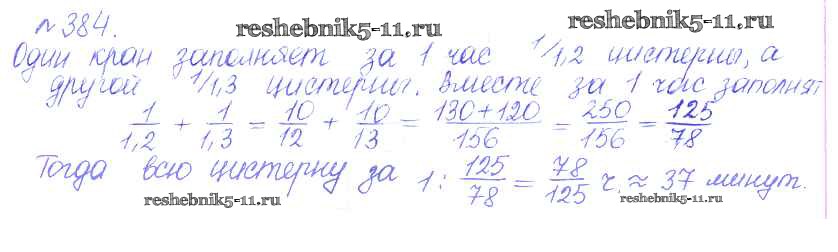 №384.
reshebnik5-11.ru
reshebnik5-11.ru
Один кран заполняет за 1 час 1/1,2 цистерны, а
другой 1/1,3 цистерны. Вместе за 1 час заполнят
1/1,2 + 1/1,3 = 10/12 + 10/13 = 130+120/156 = 250/156 = 125/78
Тогда всю цистерну за 1 : 125/78 = 78/125 ч. ≈ 37 минут.
reshebnik5-11.ru
reshebnik5-11.ru